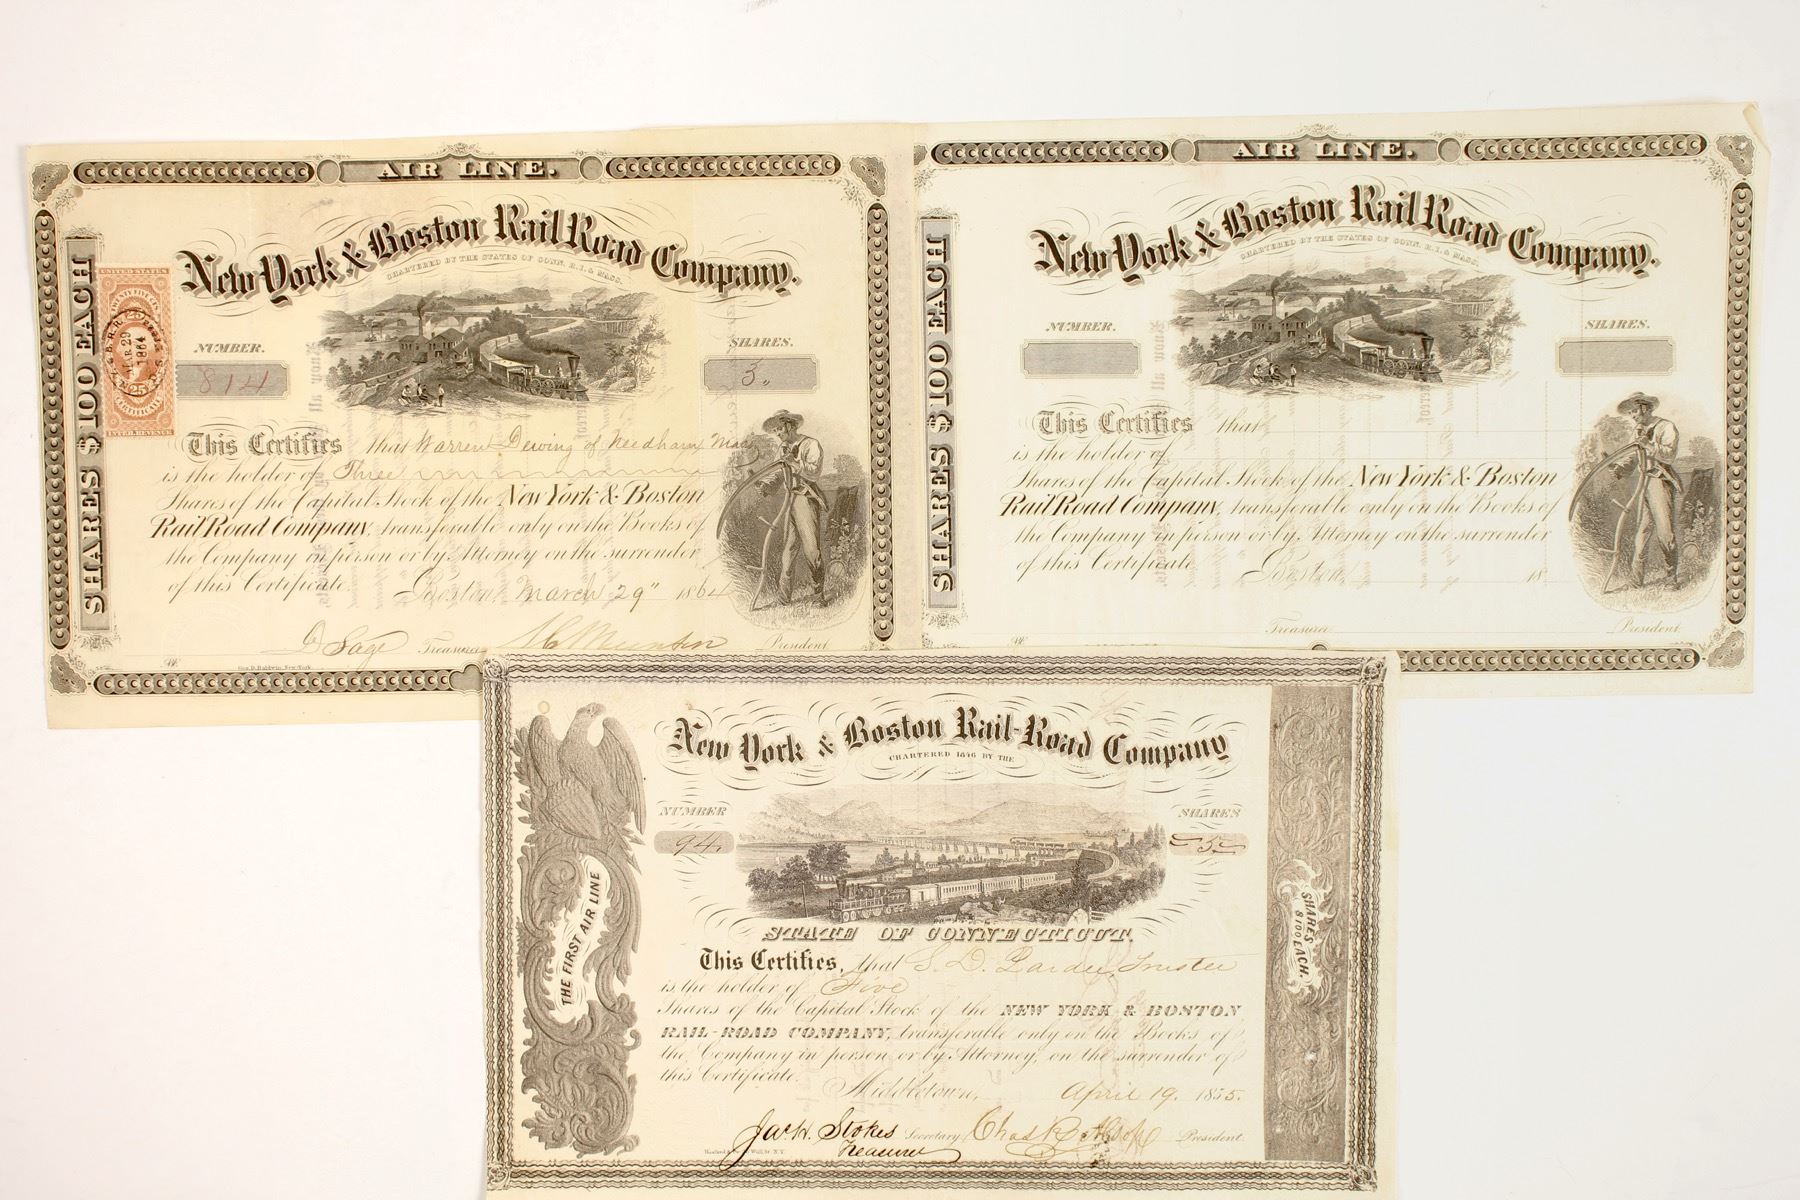 AIR LINE.
New York & Boston Rail Road Company.
CHARTERED BY THE STATES OF CONN. R.I. & MASS.
SHARES $100 EACH
UNITED STATES
TWENTY FIVE CTS
25
MAR 29
1864
25
CERTIFICATE
INTER. REVENUE
NUMBER.
814
SHARES.
3,,
This Certifies that Warren Dewing of Needham Mass
is the holder of Three
Shares of the Capital Stock of the New York & Boston
Rail Road Company, transferable only on the Books of
the Company in person or by Attorney on the surrender
of this Certificate.
Boston, March 29" 1864
D Sage Treasurer President
Geo. D. Baldwin, New York.
AIR LINE.
New York & Boston Rail Road Company.
CHARTERED BY THE STATES OF CONN. R.I. & MASS.
SHARES $100 EACH
NUMBER.
SHARES.
This Certifies that
is the holder of
Shares of the Capital Stock of the New York & Boston
Rail Road Company, transferable only on the Books of
the Company in person or by Attorney on the surrender
of this Certificate
Boston, 18
Treasurer President
New York & Boston Rail-Road Company
CHARTERED 1846 BY THE
NUMBER
94.
SHARES
5
THE FIRST AIR LINE
SHARES
$100 EACH.
STATE OF CONNECTICUT.
This Certifies, that S. D. Pardee, Trustee
is the holder of Five
Shares of the Capital Stock of the NEW YORK & BOSTON
RAIL-ROAD COMPANY, transferable only on the Books of
the Company in person or by Attorney, on the surrender of
this Certificate.
Middletown, April 19. 1855.
Jac. H. Stokes Secretary Chas R Alsop President
Treasurer
Wall St N.Y.